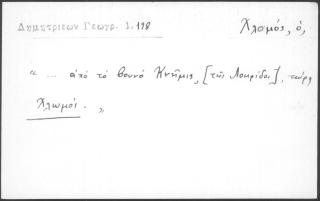 Δημητριεων Γεωγρ. 1.198
Χλομός, ὁ,
“ ... ἀπὸ τὸ βουνὸ Κνῆμις, [τῆς Λοκρίδος], τώρα
Χλωμός. „